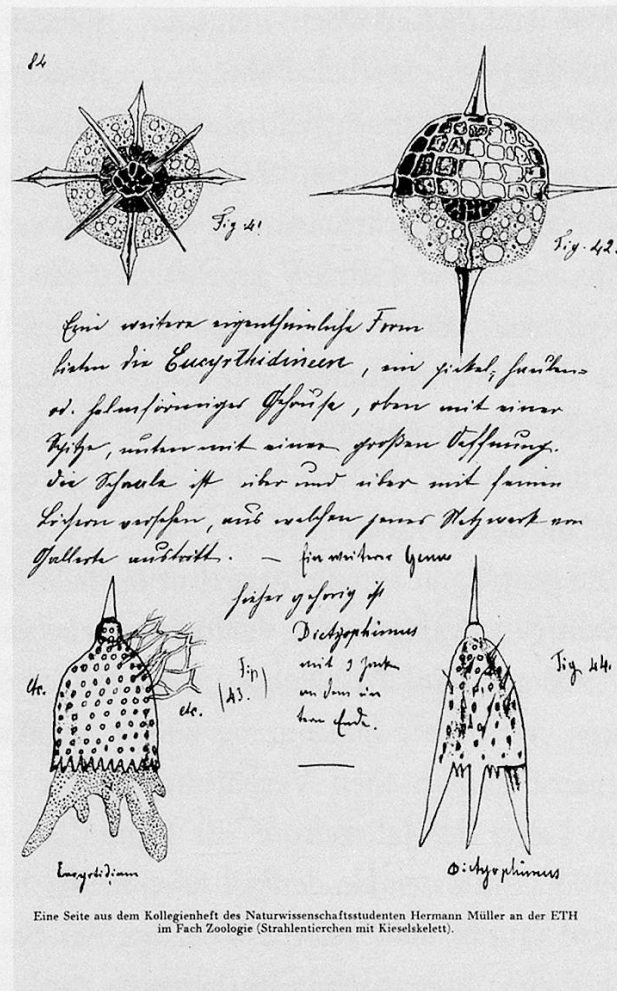 84
Fig 41.
Fig. 42.
Eine weitere eigenthümliche Form
bieten die Eucyrthidineen, ein
od. helmförmiges Gehäuse, oben mit einer
Spitze, unten mit einer großen Oeffnung.
Die Schaale ist über und über mit feinen
Löchern versehen, aus welchen jenes Netzwerk von
Gallerte austritt. — Ein weiteres Genus
hieher gehörig ist
Dictyophimus
mit 3 Zacken
an dem un
tern Ende.
etc.
etc.
Fig
43.
Fig 44.
Eucyrtidium
Dictyophimus
Eine Seite aus dem Kollegienheft des Naturwissenschaftsstudenten Hermann Müller an der ETH
im Fach Zoologie (Strahlentierchen mit Kieselskelett).